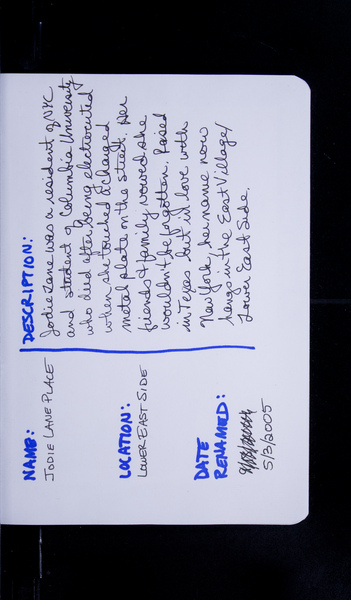 NAME:
JODIE LANE PLACE
LOCATION:
LOWER EAST SIDE
DATE
RENAMED:
5/3/2005
DESCRIPTION:
Jodie Lane was a resident of NYC
and student of Columbia University
who died after being electrocuted
when she touched a charged
metal plate on the street. Her
friends & family vowed she
wouldn't be forgotten. Raised
in Texas but in love with
New York, her name now
hangs in the East Village/
Lower East Side.